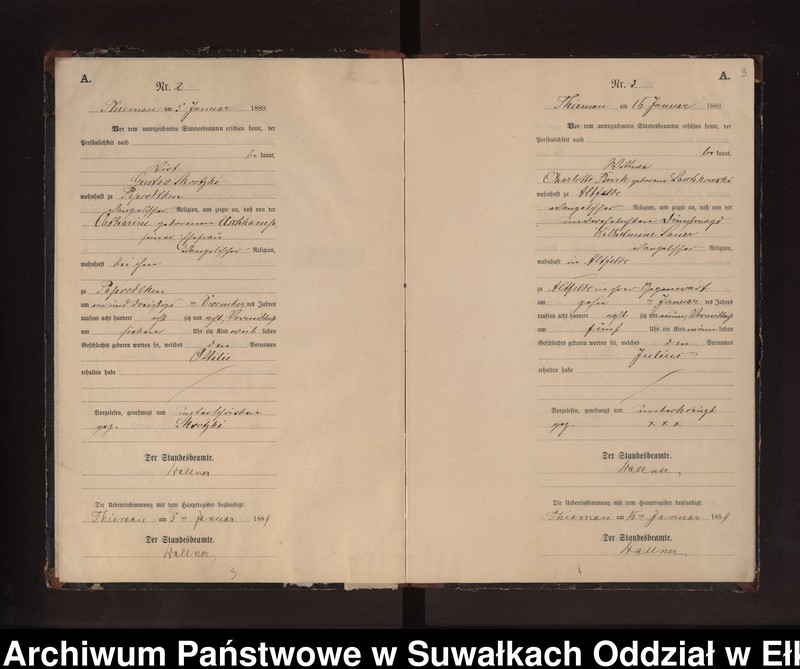 A.
Nr. 2
Thiemau am 5 Januar 1889.
Vor dem unterzeichneten Standesbeamten erschien heute, der
Persönlichkeit nach
be kannt,
Gustav Skrotzki
wohnhaft zu Paprodtken
evangelischer Religion, und zeigte an, daß von der
Catharine geborenen
seiner Ehefrau
evangelischer Religion,
wohnhaft bei ihm
zu Paprodtken
am ein und dreißigs ten Dezember des Jahres
tausend acht hundert acht zig und acht, Vormittags
um sieben Uhr ein Kind weib lichen
Geschlechts geboren worden sei, welches den Vornamen
Ottilie
erhalten habe
Vorgelesen, genehmigt und unterschrieben
gez. Skrotzki
Der Standesbeamte.
Wallner
Die Uebereinstimmung mit dem Hauptregister beglaubigt.
Thiemau am 5 ten Januar 1889
Der Standesbeamte.
Wallner
3
A.
3
Nr. 3
Thiemau am 16 Januar 1889.
Vor dem unterzeichneten Standesbeamten erschien heute, der
Persönlichkeit nach
be kannt,
Wittwe
Charlotte geborene
wohnhaft zu Altfelde
evangelischer Religion, und zeigte an, daß von der
unverehelichten Dienstmagd
Wilhelmine Sauer
evangelischer Religion,
wohnhaft in Altfelde
zu Altfelde in ihrer Gegenwart
am zehn ten Januar des Jahres
tausend acht hundert acht zig und neun, Vormittags
um fünf Uhr ein Kind männ lichen
Geschlechts geboren worden sei, welches den Vornamen
Julius
erhalten habe
Vorgelesen, genehmigt und unterkreuzt
gez. + + +
Der Standesbeamte.
Wallner
Die Uebereinstimmung mit dem Hauptregister beglaubigt.
Thiemau am 16 ten Januar 1889
Der Standesbeamte.
Wallner
4
Archiwum Państwowe w Suwałkach Oddział w Eł